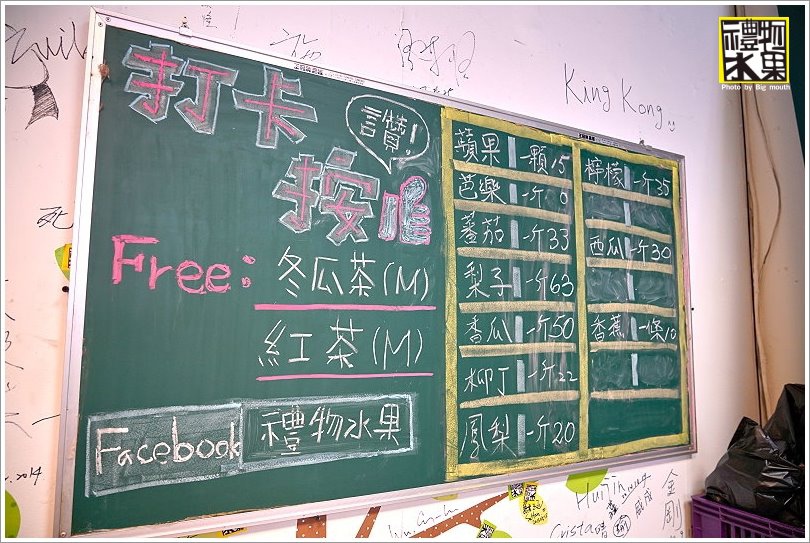 禮物水果
Photo by Big mouth
King Kong
打卡
讚!
按
Free: 冬瓜茶(M)
紅茶(M)
Facebook 禮物水果
蘋果 一顆15
芭樂 一斤
蕃茄 一斤33
梨子 一斤63
香瓜 一斤50
柳丁 一斤22
鳳梨 一斤20
檸檬 一斤35
西瓜 一斤30
香蕉 一條10
2014
金剛